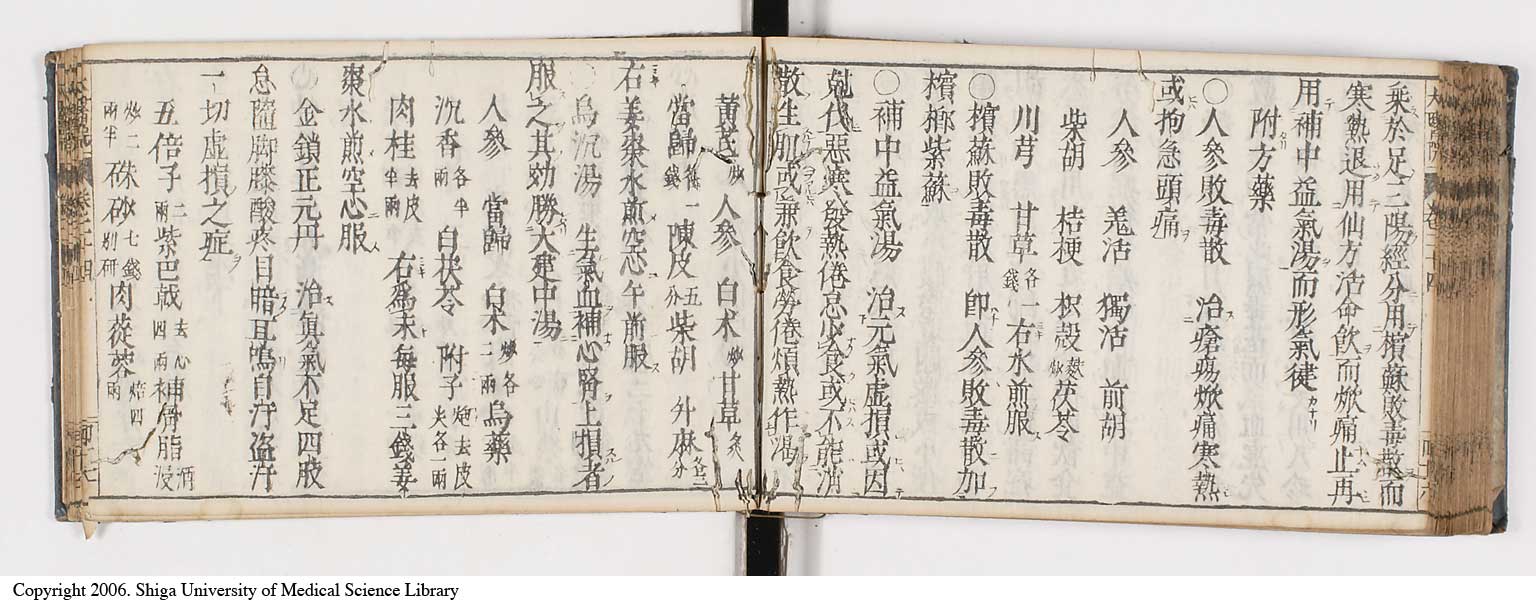 乘於足三陽經分用檳蘇敗毒散而
寒熱退用仙方活命飲而焮痛止再
用補中益氣湯而形氣健
附方藥
○人參敗毒散 治瘡瘍焮痛寒熱
或拘急頭痛
人參 羗活 獨活 前胡
柴胡 桔梗 枳殼麩炒茯苓
川芎 甘草各一錢右水煎服
○檳蘇敗毒散 卽人參敗毒散加
檳榔紫蘇
○補中益氣湯 治元氣虛損或因
尅伐惡寒發熱倦怠少食或不能消
散生肌或兼飲食勞倦煩熱作渴
黄芪炒人參 白术炒甘草炙
當歸 錢陳皮五分柴胡 升麻各三分
右姜棗水煎空心午前服
○烏沉湯 生氣血補心腎上損者
服之其効勝大建中湯
人參 當歸 白术各二兩烏藥
沉香各半兩白茯苓 附子炮去皮尖各一兩
肉桂去皮半兩 右爲末每服三錢姜
棗水煎空心服
○金鎖正元丹 治眞氣不足四肢
怠墯脚膝酸疼目暗耳鳴自汗盗汗
一切虛損之症
五倍子二兩紫巴戟去心四兩補骨脂酒浸
炒二兩半硃砂七錢別研肉蓯蓉焙四兩
Copyright 2006. Shiga University of Medical Science Library